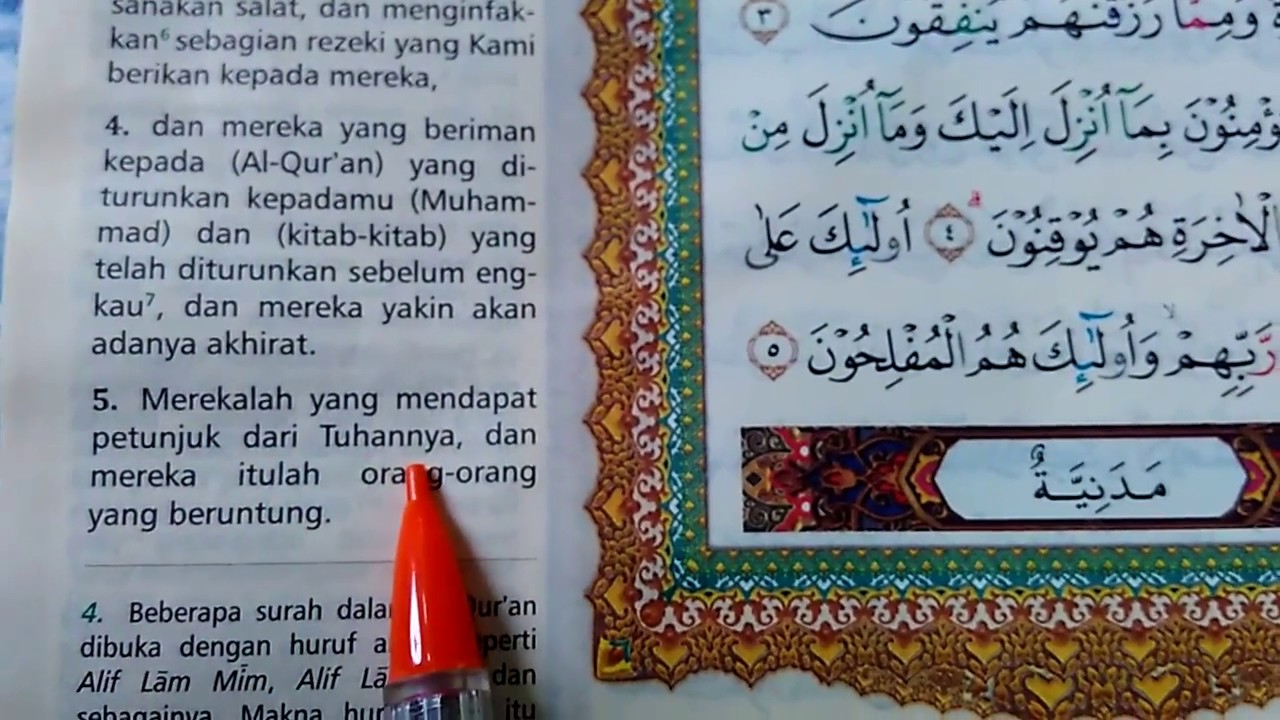 sanakan salat, dan menginfak-
kan⁶ sebagian rezeki yang Kami
berikan kepada mereka,
4. dan mereka yang beriman
kepada (Al-Qur'an) yang di-
turunkan kepadamu (Muham-
mad) dan (kitab-kitab) yang
telah diturunkan sebelum eng-
kau⁷, dan mereka yakin akan
adanya akhirat.
5. Merekalah yang mendapat
petunjuk dari Tuhannya, dan
mereka itulah orang-orang
yang beruntung.
4. Beberapa surah Qur'an
dibuka dengan huruf
Alif Lām Mīm, Alif dan
sebagainya. Makna itu
وَمِمَّا رَزَقْنٰهُمْ يُنْفِقُوْنَ ٣
بِمَآ اُنْزِلَ اِلَيْكَ وَمَآ اُنْزِلَ مِنْ
الْاٰخِرَةِ هُمْ يُوْقِنُوْنَۗ ٤ اُولٰۤىِٕكَ عَلٰى
رَّبِّهِمْ ۙ وَاُولٰۤىِٕكَ هُمُ الْمُفْلِحُوْنَ ٥
مَدَنِيَّةٌ